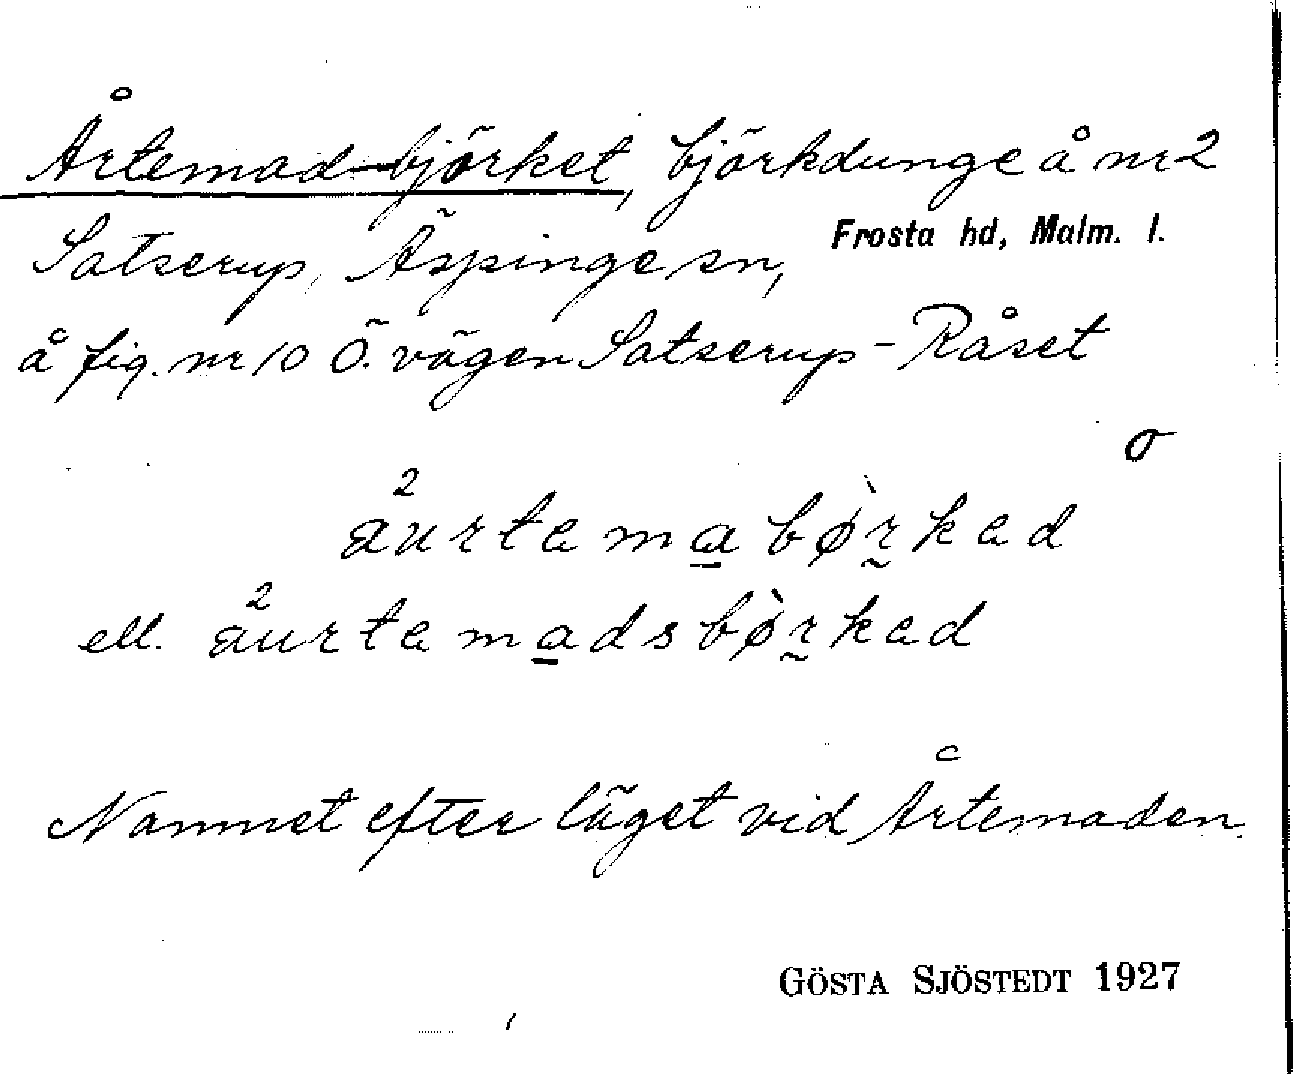 Årtemad-björket, björkdunge å nr 2
Satserup, Äspinge sn, Frosta hd, Malm. l.
å fig. nr 10 Ö. vägen Satserup - Råset
σ
2
äurtema̲bø̀r̰kad
ell. 2
äurtema̲dsbø̀r̰kad
Namnet efter läget vid Årtemaden.
GÖSTA SJÖSTEDT 1927